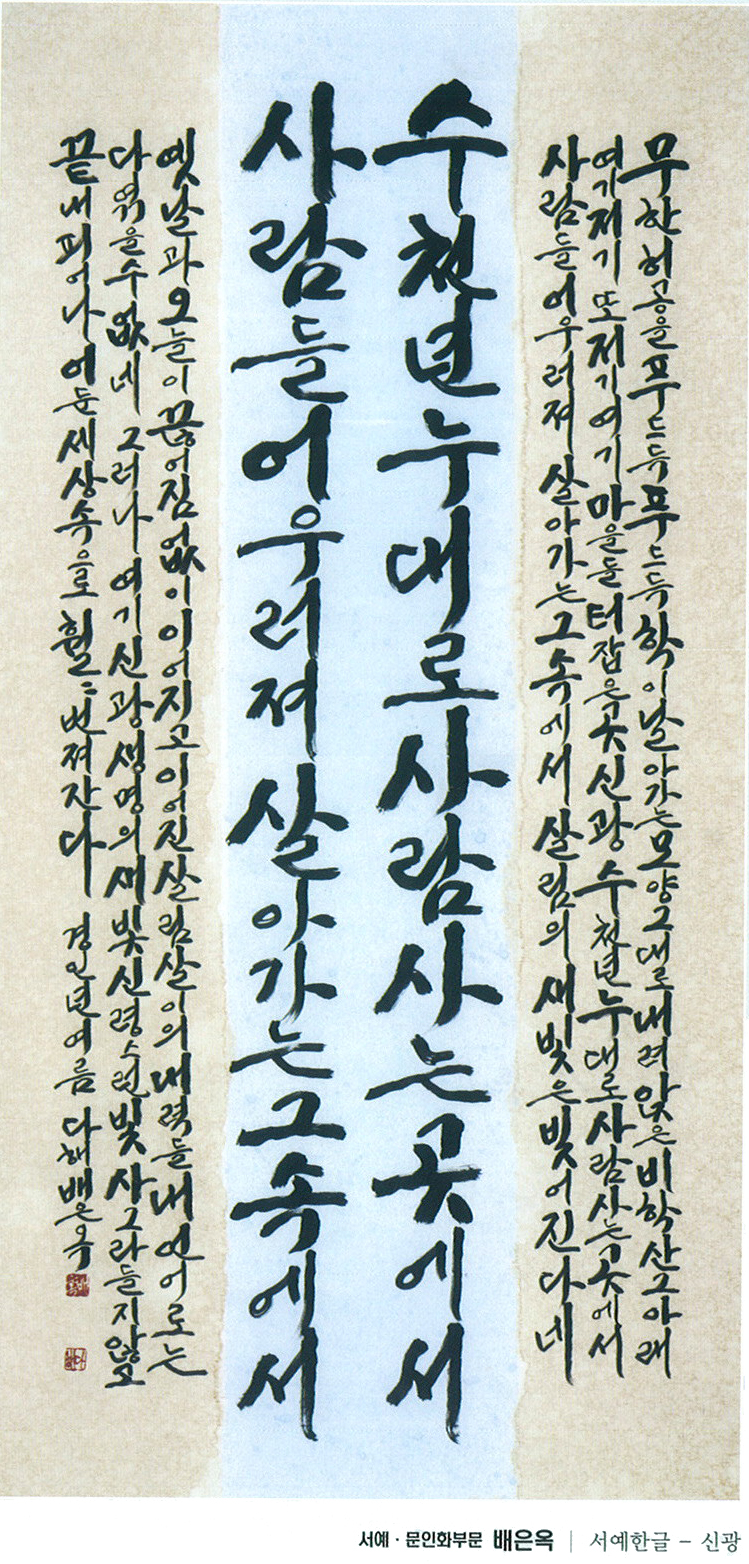 무한허공을 푸드득 푸드득 학이 날아가는 모양 그대로 내려앉은 비학산 그 아래
여기저기 또 저기여기 마을들 터잡은 곳 신광 수천년 누대로 사람 사는 곳에서
사람들 어우러져 살아가는 그 속에서 살림의 새빛은 빚어진다네
수천년 누대로 사람 사는 곳에서
사람들 어우러져 살아가는 그 속에서
옛날과 오늘이 끊어짐 없이 이어지고 이어진 살림살이의 내력들 내 언어로는
다 엮을 수 없네 그러나 여기 신광 생명의 새빛 신령스런 빛 사그라들지 않고
끝내 피어나 어둔 세상 속으로 훨〃 번져간다 경인년 여름 다해 배은옥
서예 · 문인화부문 배은옥 | 서예한글 - 신광